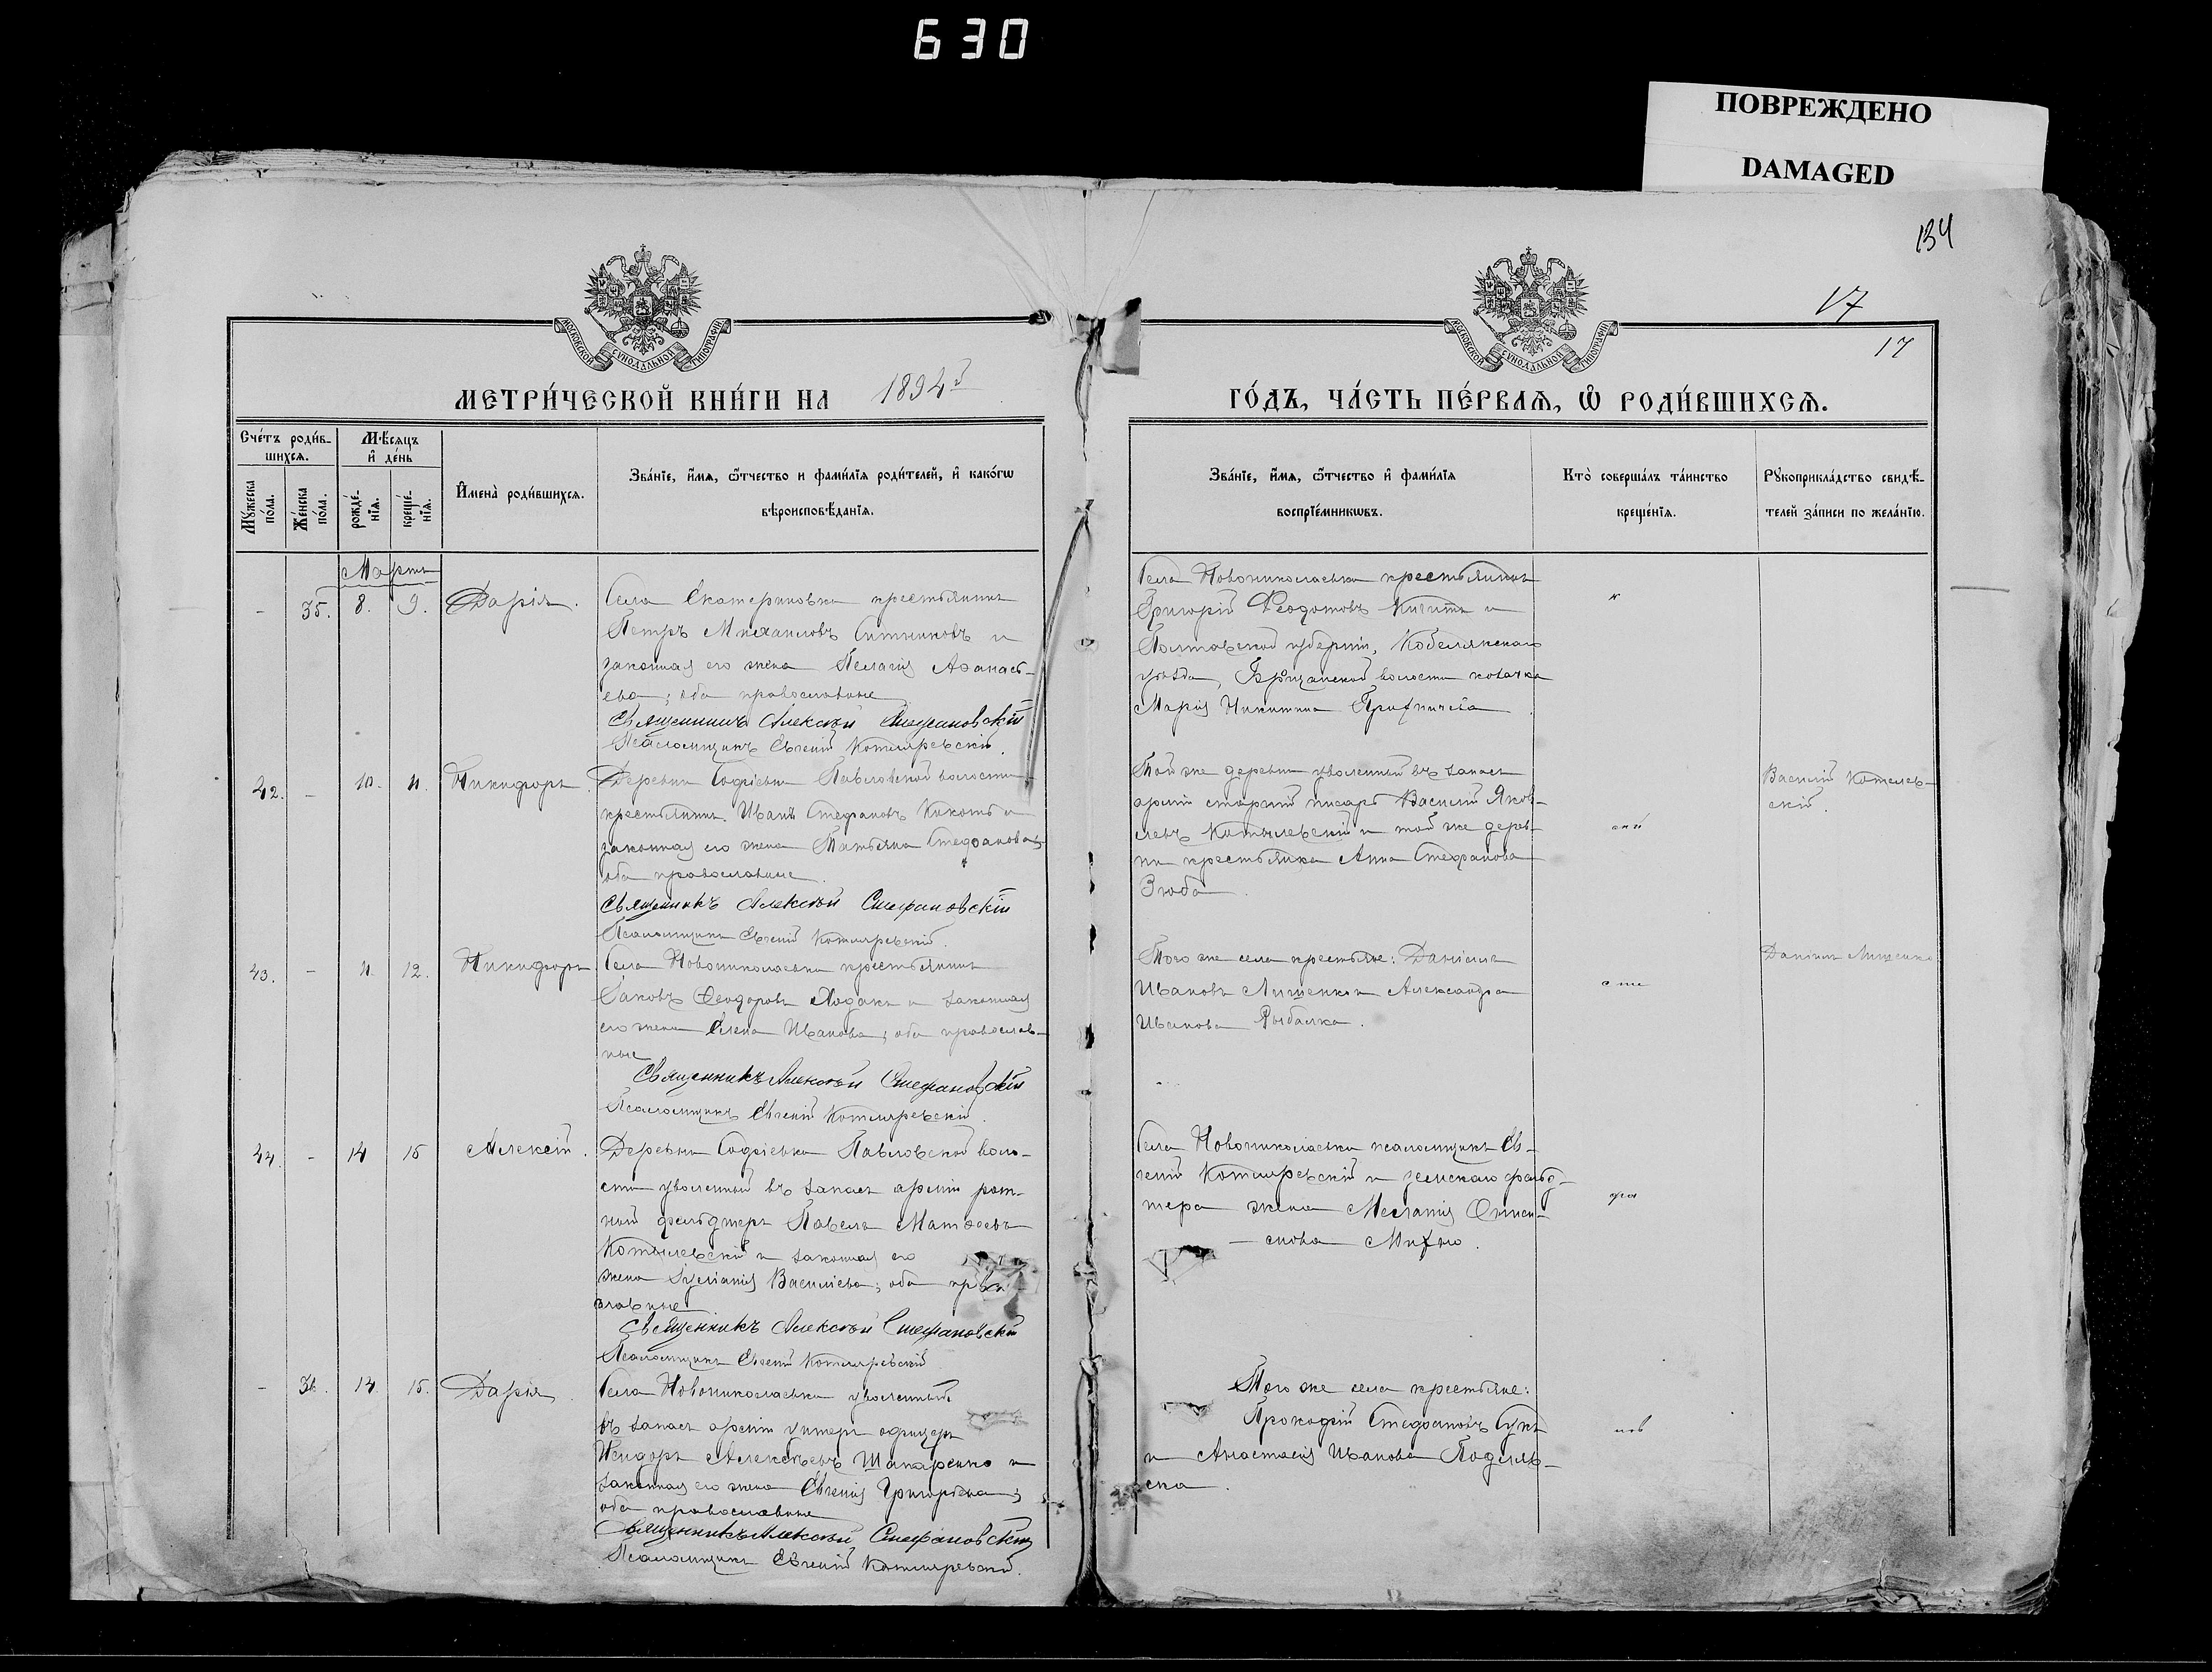 630
ПОВРЕЖДЕНО
DAMAGED
134
17
17
МОСКОВСКОЙ СѴНОДАЛЬНОЙ ТИПОГРАФІИ
МОСКОВСКОЙ СѴНОДАЛЬНОЙ ТИПОГРАФІИ
МЕТРИ́ЧЕСКОЙ КНИ́ГИ НА 1894й
ГО́ДЪ, ЧА́СТЬ ПЕ́РВАѦ, Ѡ҆ РОДИ́ВШИХСѦ.
Сче́тъ роди́в-
шихсѧ.
Мѣ́сѧцъ
и҆ де́нь
Мꙋ́жеска
по́ла.
Же́нска
по́ла.
рожде́-
нїѧ.
креще́-
нїѧ.
И҆мена̀ роди́вшихсѧ.
Зва́нїе, и҆́мѧ, ѻ҆́тчество и фами́лїѧ роди́телей, и҆ како́гѡ
вѣроисповѣ́данїѧ.
Зва́нїе, и҆́мѧ, ѻ҆́тчество и҆ фами́лїѧ
воспрїе́мникѡвъ.
Кто̀ соверша́лъ та́инство
креще́нїѧ.
Рꙋкоприкла́дство свидѣ́-
телей за́писи по жела́нїю.
Мартъ
- 35. 8. 9. Дарія.
Села Екатериновки крестьянинъ
Петръ Михаиловъ Ситниковъ и
законная его жена Пелагія Аѳанась-
ева; оба православные
Священникъ Алексѣй Стефановскій
Псаломщикъ Евгеній Котляревскій.
Села Новониколаевки крестьянинъ
Григорій Ѳеодотовъ и
Полтавской губерніи, Кобелякскаго
уѣзда, волости козачка
Марія Никитина
42. - 10. 11. Никифоръ.
Деревни Софіевки Павловской волости
крестьянинъ Иванъ Стефановъ Кикоть и
законная его жена Татьяна Стефанова
оба православные.
Священникъ Алексѣй Стефановскій
Псаломщикъ Евгеній Котляревскій.
Той же деревни уволенный въ запасъ
арміи старшій писарь Василій Яков-
левъ Котелевскій и той же дерев-
ни крестьянка Анна Стефанова
Зюба.
Василій Котелев-
скій.
43. - 11. 12. Никифоръ
Села Новониколаевки крестьянинъ
Іаковъ Ѳеодоровъ и законная
его жена Елена Иванова; оба православ-
ные
Священникъ Алексѣй Стефановскій
Псаломщикъ Евгеній Котляревскій.
Того же села крестьяне: Даніилъ
Ивановъ Лищенко и Александра
Иванова Рыбалка.
Даніилъ Лищенко
44. - 14 15 Алексій.
Деревни Софіевки Павловской воло-
сти уволенный въ запасъ арміи рот-
ный фельдшеръ Павелъ Матѳеевъ
Котелевскій и законная его
жена Іуліанія Василіева; оба право-
славные
Священникъ Алексѣй Стефановскій
Псаломщикъ Евгеній Котляревскій
Села Новониколаевки псаломщикъ Ев-
геній Котляревскій и земскаго фельд-
шера жена Меланія
- 36. 14 15. Дарія
Села Новониколаевки уволенный
въ запасъ арміи унтеръ офицеръ
Исидоръ Алексѣевъ Шапаренко и
законная его жена Евгенія Григорьева;
оба православные
Священникъ Алексѣй Стефановскій
Псаломщикъ Евгеній Котляревскій.
Того же села крестьяне:
Прокофій Стефановъ
и Анастасія Иванова